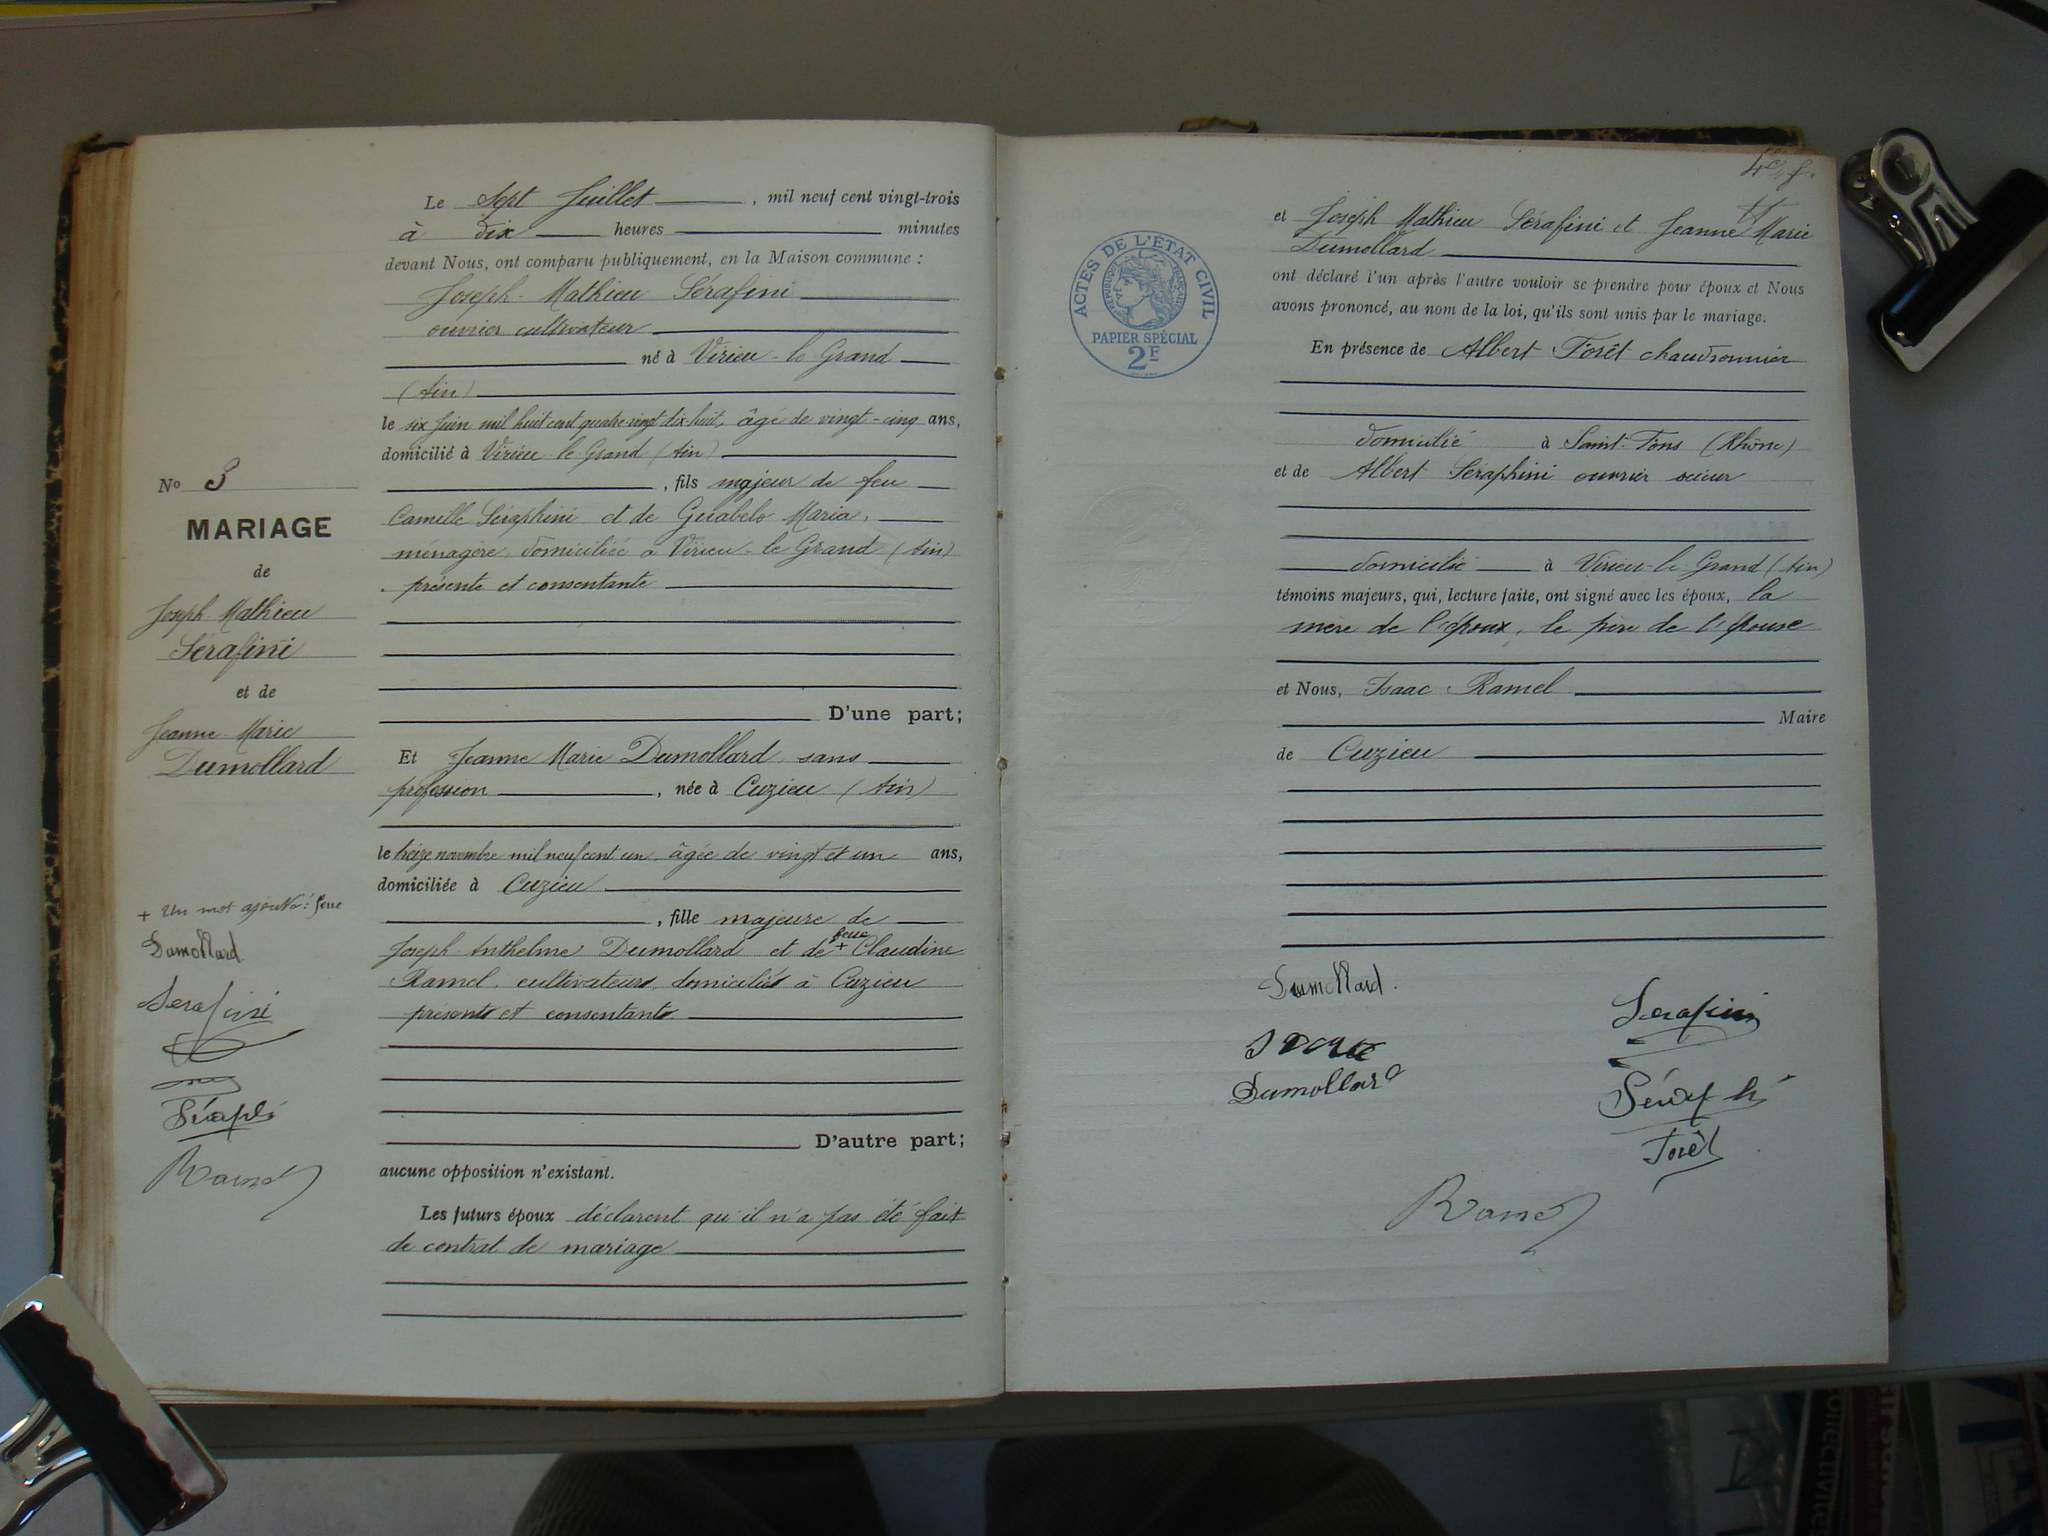 Le Sept Juillet, mil neuf cent vingt-trois
à dix heures minutes
devant Nous, ont comparu publiquement, en la Maison commune :
Joseph-Mathieu Sérafini
ouvrier cultivateur
né à Virieu-le Grand
(Ain)
le six Juin mil huit cent quatre-vingt dix huit, âgé de vingt-cinq ans,
domicilié à Virieu-le Grand (Ain)
, fils majeur de feu
Camille Séraphini et de Maria,
ménagère, domiciliée à Virieu-le Grand (Ain)
présente et consentante
D'une part;
Et Jeanne Marie Dumollard, sans
profession, née à Cuzieu (Ain)
le treize novembre mil neuf cent un, âgée de vingt et un ans,
domiciliée à Cuzieu
, fille majeure de
feue
Joseph-Anthelme Dumollard et de + Claudine
Ramel, cultivateurs, domiciliés à Cuzieu
présents et consentants
D'autre part;
aucune opposition n'existant.
Les futurs époux déclarent qu'il n'a pas été fait
de contrat de mariage
No 3
MARIAGE
de
Joseph Mathieu
Sérafini
et de
Jeanne-Marie
Dumollard
+ Un mot ajouté : feue
Dumollard
Serafini
Ramel
et Joseph Mathieu Sérafini et Jeanne Marie
Dumollard
ont déclaré l'un après l'autre vouloir se prendre pour époux et Nous
avons prononcé, au nom de la loi, qu'ils sont unis par le mariage.
ACTES DE L'ÉTAT CIVIL
RÉPUBLIQUE FRANÇAISE
PAPIER SPÉCIAL
2F
En présence de Albert Forêt chaudronnier
domicilié à Saint-Fons (Rhône)
et de Albert Séraphini ouvrier scieur
domicilié à Virieu-le Grand (Ain)
témoins majeurs, qui, lecture faite, ont signé avec les époux, la
mère de l'époux, le père de l'épouse
et Nous, Isaac Ramel
Maire
de Cuzieu
Dumollard.
Serafini
Dumollard
Forêt
Ramel